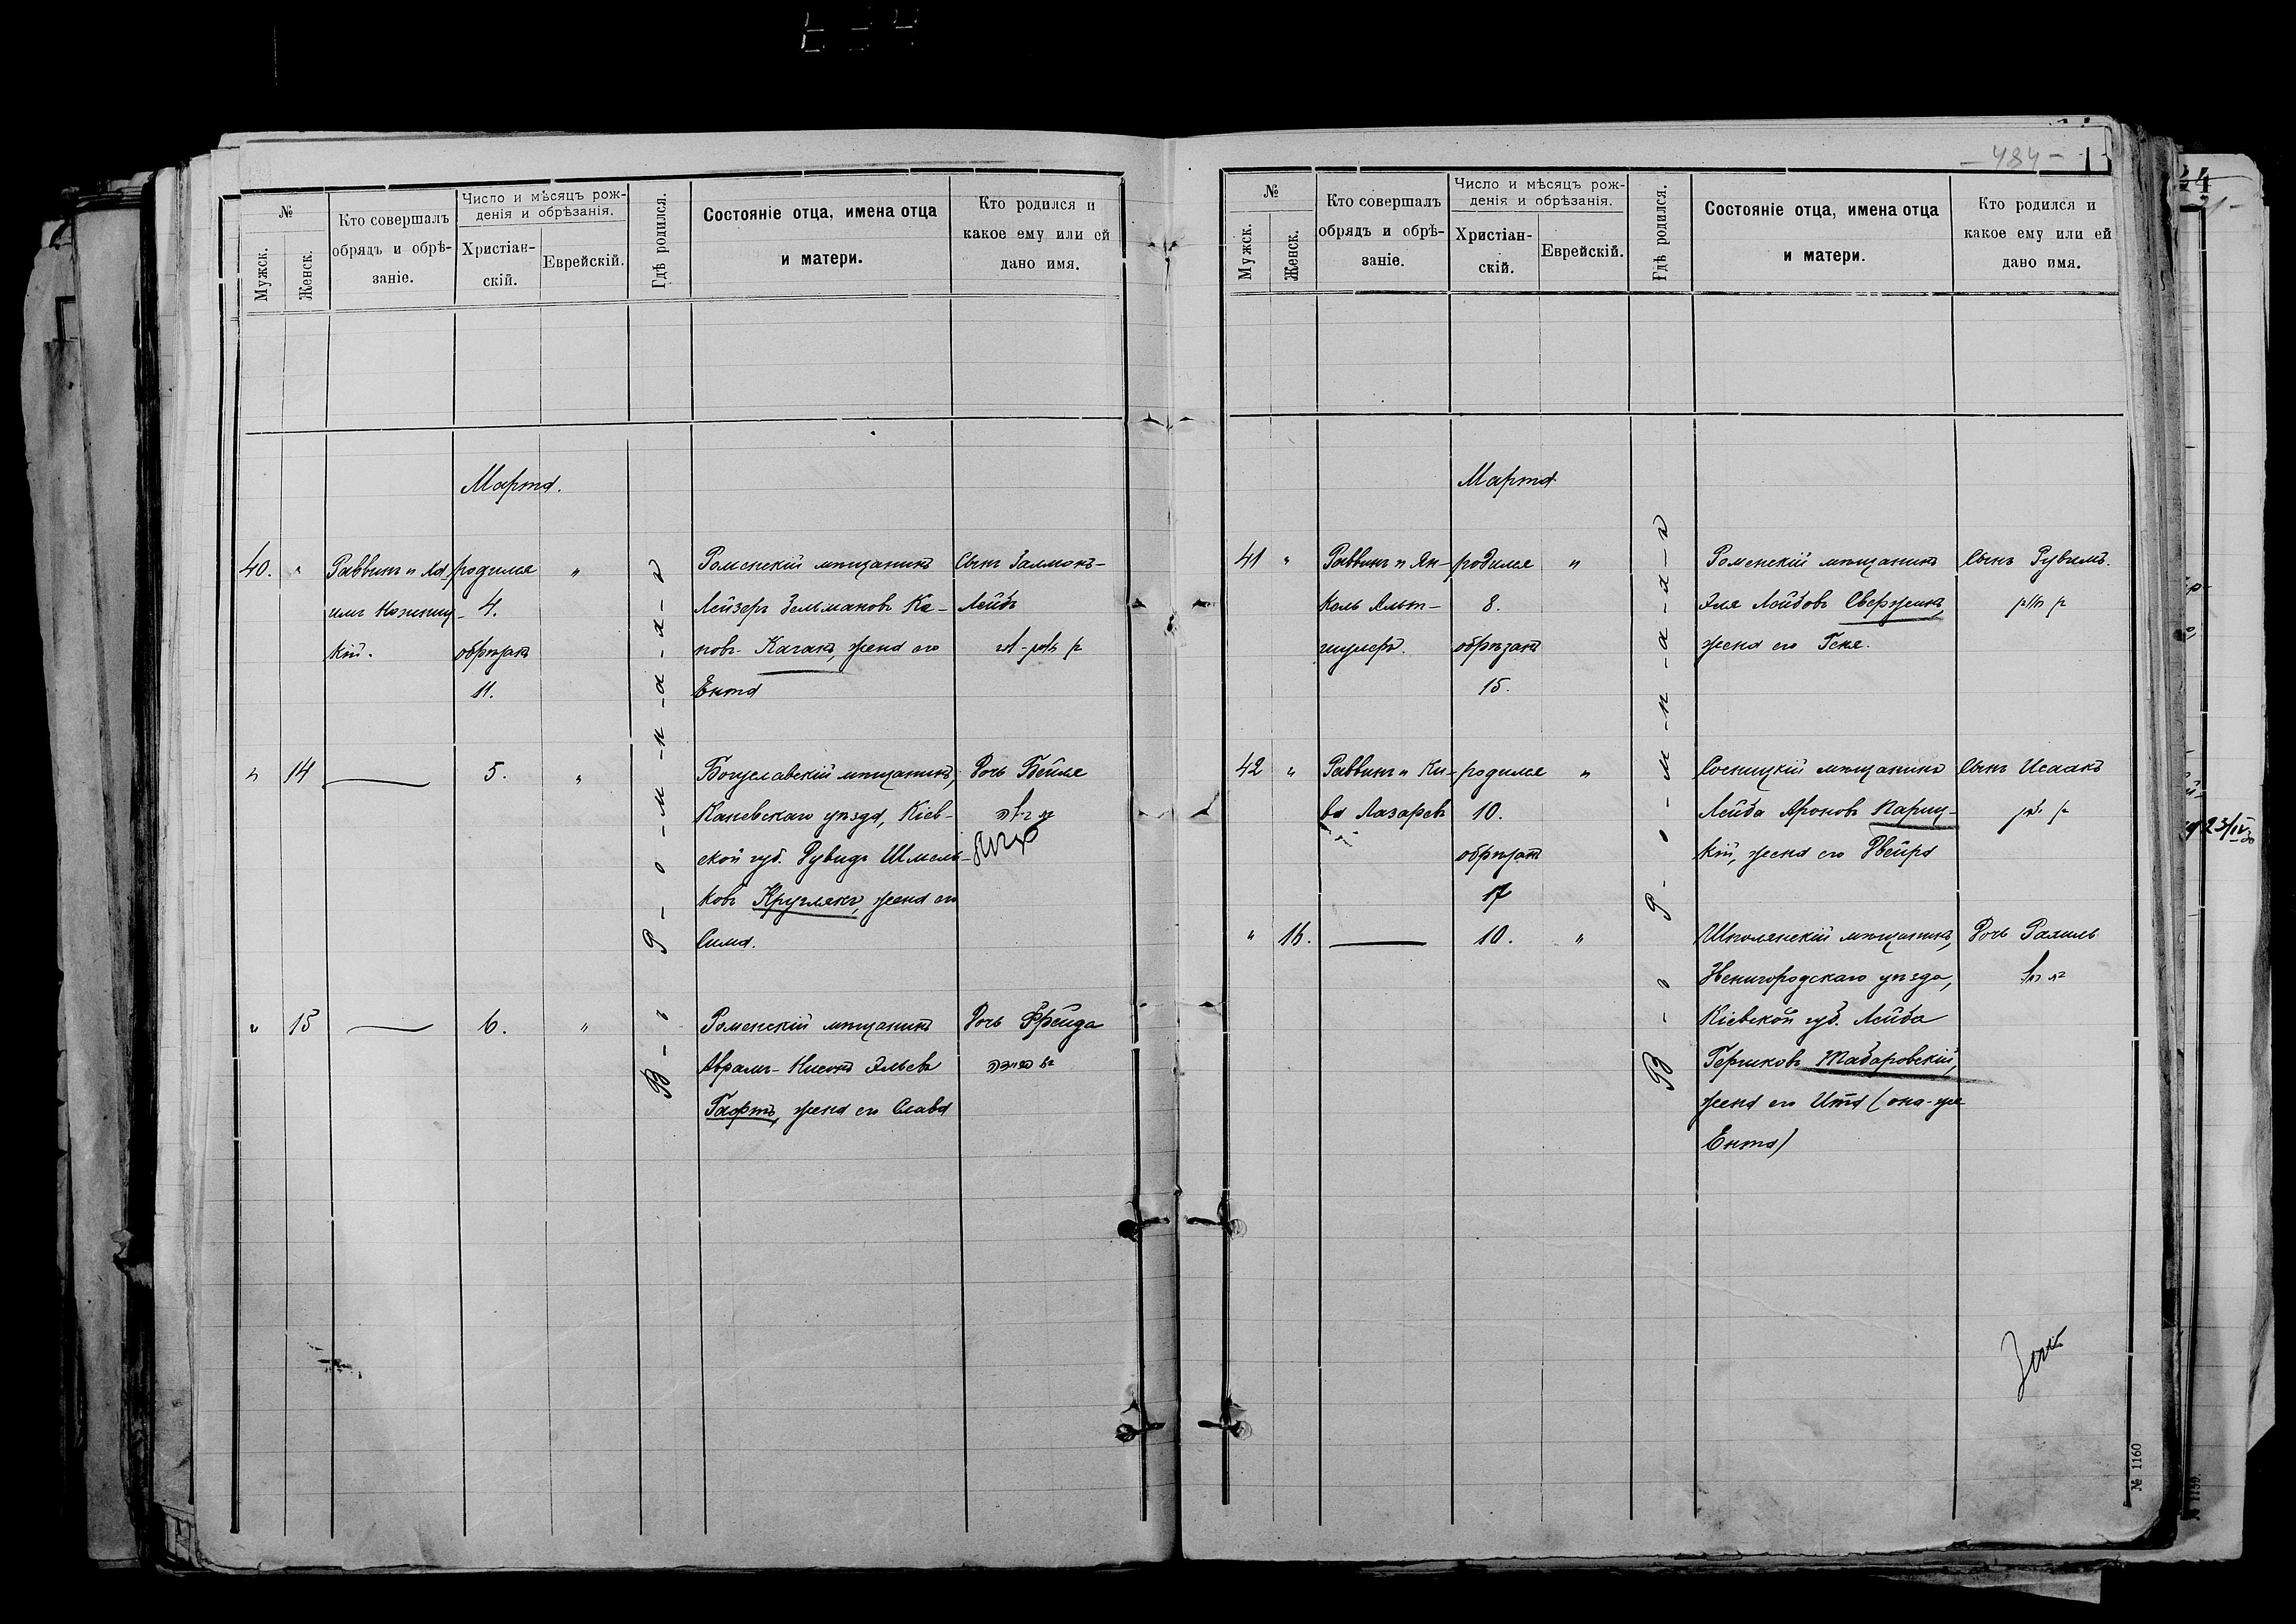 №
Мужск.
Женск.
Кто совершалъ
обрядъ и обрѣ-
заніе.
Число и мѣсяцъ рож-
денія и обрѣзанія.
Христіан-
скій.
Еврейскій.
Гдѣ родился.
Состояніе отца, имена отца
и матери.
Кто родился и
какое ему или ей
дано имя.
Марта.
В-о Р-о-м-н-а-х-ъ
40. " Раввинъ и
кій.
родился "
4.
обрѣзанъ
11.
Роменскій мѣщанинъ
Лейзеръ Зельмановъ Ка-
новъ- Каганъ, жена его
Ента
Сынъ Залмонъ-
Лейбъ
" 14 — 5. "
Богуславскій мѣщанинъ,
Каневскаго уѣзда, Кіев-
ской губ. Рувидъ Шмель-
ковъ Круглякъ, жена его
Сима.
Дочь Бейля
" 15 — 6. "
Роменскій мѣщанинъ
Абрамъ-Нисонъ Эльевъ
Гафтъ, жена его Слава
Дочь Фрейда
- 484 -
№
Мужск.
Женск.
Кто совершалъ
обрядъ и обрѣ-
заніе.
Число и мѣсяцъ рож-
денія и обрѣзанія.
Христіан-
скій.
Еврейскій.
Гдѣ родился.
Состояніе отца, имена отца
и матери.
Кто родился и
какое ему или ей
дано имя.
Марта
В-о Р-о-м-н-а-х-ъ
41 " Раввинъ и Ян-
кель Альт-
шулеръ.
родился "
8.
обрѣзанъ
15.
Роменскій мѣщанинъ
Эля Лейбовъ Свержинъ,
жена его Геня.
Сынъ Рувимъ.
42 " Раввинъ и Ки-
ва Лазаревъ
родился "
10.
обрѣзанъ
17
Сосницкій мѣщанинъ
Лейба Ароновъ Париц-
кій, жена его Двейра
Сынъ Исаакъ
" 16. — 10. "
Шполянскій мѣщанинъ,
Звенигородскаго уѣзда,
Кіевской губ. Лейба
Гершковъ Табаровскій,
жена его Ита (она-же
Ента)
Дочь Рахиль
№ 1160
№ 1159.